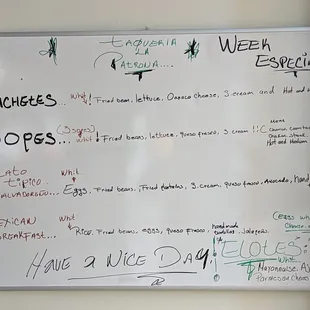 TAQUERIA
LA
PATRONA....
WEEK
ESPECIA
ACHETES... Whit Fried bean, lettuce, Oaxaca cheese, S. cream and Hot and
SOPES (3 sopes) ... Whit Fried beans, lettuce, queso fresco, S. cream !! C
Hot and Medium
LATO
TIPICO..
SALVADOREÑO... Whit Eggs, Fried beans, Fried , S. cream, queso fresco, Avocado, hand
EXICAN
BREAKFAST... Whit Rico, Fried beans, eggs, queso fresco, handmade tortillas, Jalapeño.
HAVE A NICE DAY.
ELOTES:
Whit
Mayonnaise,
Parmesan Chees